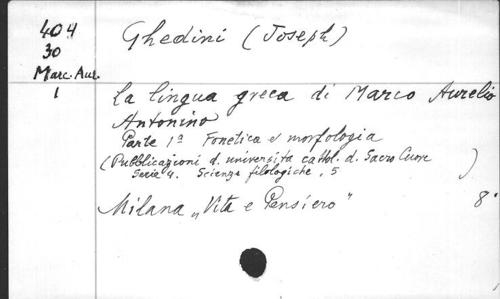 404
30
Marc. Aur.
1
Ghedini (Joseph)
La lingua greca di Marco Aurelio
Antonino
Parte 1a Fonetica e morfologia
(Pubblicazioni d. universita cattol. d. Sacro Cuore
Serie 4. Scienze filologiche, 5)
Milana „Vita e Pensiero" 8°